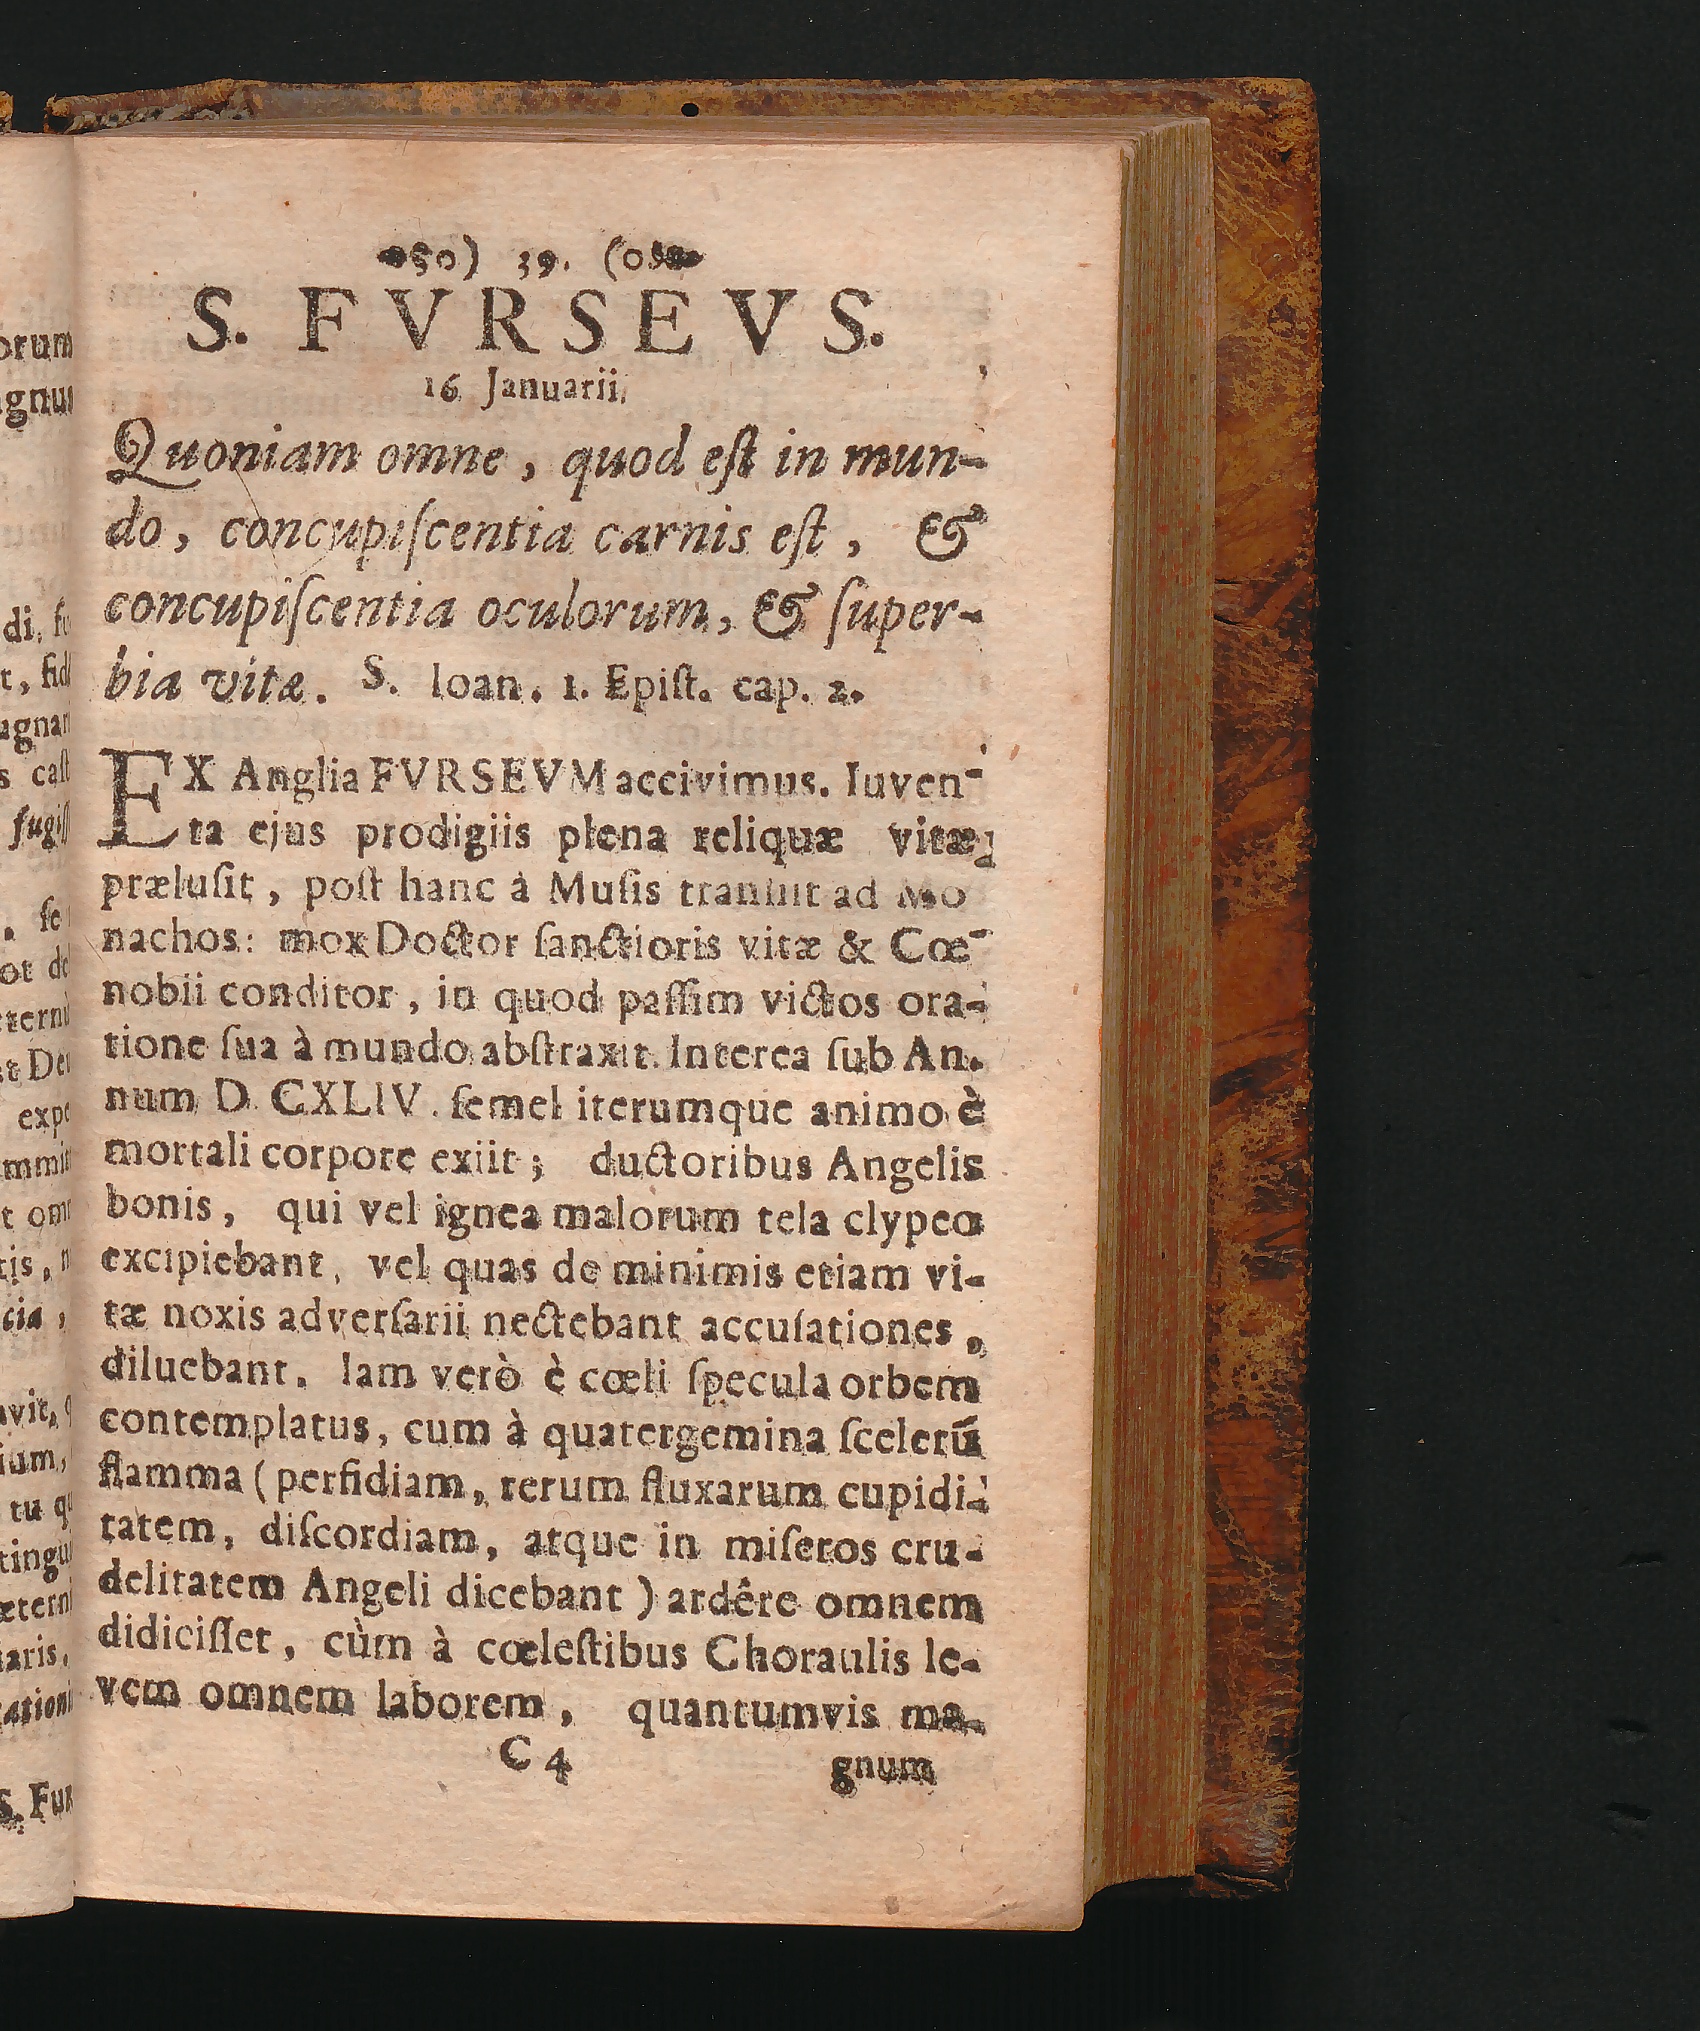 50) 39. (05
S. FVRSEVS.
16 Januarii.
Quoniam omne, quod eſt in mun-
do, concupiſcentia carnis eſt, &
concupiſcentia oculorum, & ſuper-
bia vitæ. S. Ioan. 1. Epiſt. cap. 2.
EX Anglia FVRSEVM accivimus. Iuven-
ta ejus prodigiis plena reliquæ vitæ
præluſit, poſt hanc à Muſis tranſiit ad Mo
nachos: mox Doctor ſanctioris vitæ & Cœ-
nobii conditor, in quod paſſim victos ora-
tione ſua à mundo abſtraxit. Interea ſub An-
num D. CXLIV. ſemel iterumque animo è
mortali corpore exiit; ductoribus Angelis
bonis, qui vel ignea malorum tela clypeo
excipiebant, vel quas de minimis etiam vi-
tæ noxis adverſarii nectebant accuſationes,
diluebant. Iam verò è cœli ſpecula orbem
contemplatus, cum à quatergemina ſcelerū
flamma (perfidiam, rerum fluxarum cupidi-
tatem, diſcordiam, atque in miſeros cru-
delitatem Angeli dicebant) ardêre omnem
didiciſſet, cùm à cœleſtibus Choraulis le-
vem omnem laborem, quantumvis ma-
C 4 gnum
orum
gnus
di,
t, fid
ugnar
s caſt
fugiſſ
. ſe
ot de
t De
expe
t om
tis,
cia,
avit,
ium,
tu q
tingu
ætern
aris,
ation
S. Fur